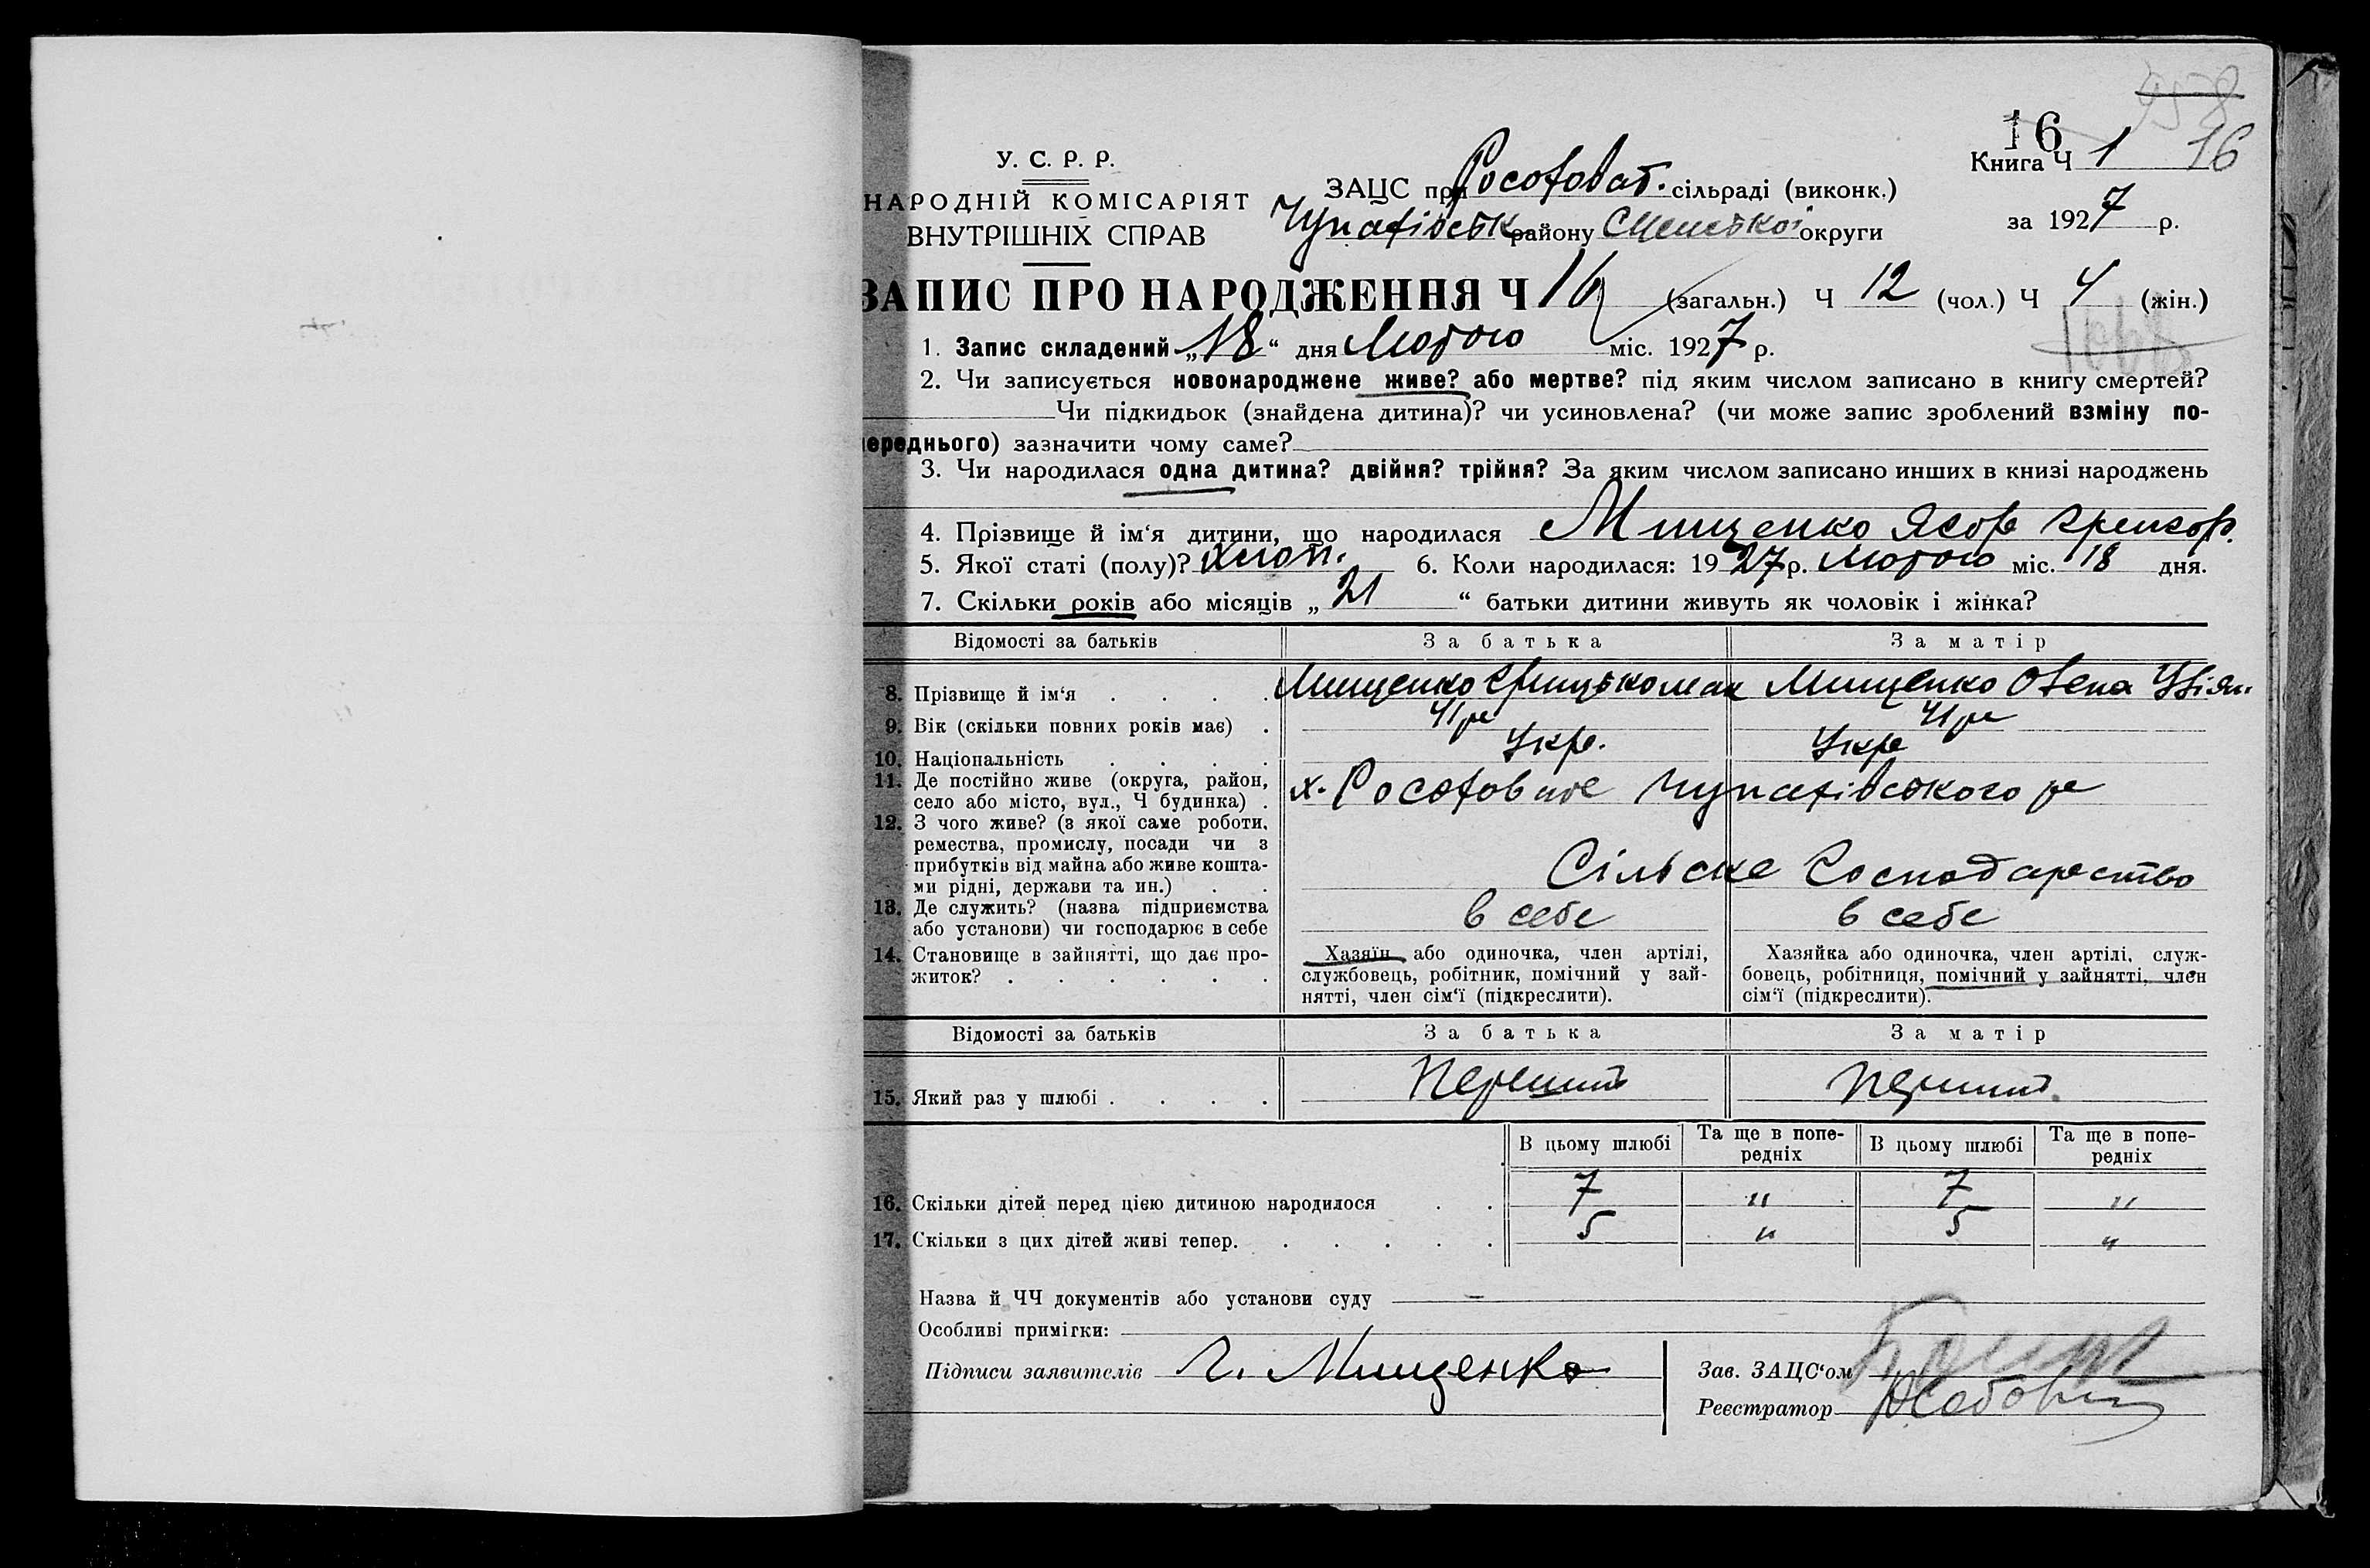 958
16
У. С. Р. Р.
НАРОДНІЙ КОМІСАРІЯТ
ВНУТРІШНІХ СПРАВ
ЗАЦС при Росоховат. сільраді (виконк.)
Чупахівськ району Сумської округи
Книга Ч 1 16
за 1927 р.
ЗАПИС ПРО НАРОДЖЕННЯ Ч 16 (загальн.) Ч 12 (чол.) Ч 4 (жін.)
1. Запис складений „18“ дня Лютого міс. 1927 р.
2. Чи записується новонароджене живе? або мертве? під яким числом записано в книгу смертей?
Чи підкидьок (знайдена дитина)? чи усиновлена? (чи може запис зроблений взміну по-
переднього) зазначити чому саме?
3. Чи народилася одна дитина? двійня? трійня? За яким числом записано инших в книзі народжень
4. Прізвище й ім‘я дитини, що народилася Мищенко Яков Григор.
5. Якої статі (полу)? хлоп. 6. Коли народилася: 1927 р. Лютого міс. 18 дня.
7. Скільки років або місяців „ 21 “ батьки дитини живуть як чоловік і жінка?
Відомості за батьків За батька За матір
8. Прізвище й ім‘я . . . . Мищенко Грицько Мищенко
9. Вік (скільки повних років має) . 41 р 41 р
10. Національність . . . . Укр. Укр
11. Де постійно живе (округа, район,
село або місто, вул., Ч будинка) . х. Росоховате Чупахівського р
12. З чого живе? (з якої саме роботи,
ремества, промислу, посади чи з
прибутків від майна або живе кошта-
ми рідні, держави та ин.) . . Сільске Господарство
13. Де служить? (назва підприємства
або установи) чи господарює в себе в себе в себе
14. Становище в зайнятті, що дає про-
житок? . . . . . .
Хазяїн або одиночка, член артілі,
службовець, робітник, помічний у зай-
нятті, член сім‘ї (підкреслити).
Хазяйка або одиночка, член артілі, служ-
бовець, робітниця, помічний у зайнятті, член
сім‘ї (підкреслити).
Відомості за батьків За батька За матір
15. Який раз у шлюбі . . . . Перший Перший
В цьому шлюбі Та ще в попе-
редніх В цьому шлюбі Та ще в попе-
редніх
16. Скільки дітей перед цією дитиною народилося . . 7 " 7 "
17. Скільки з цих дітей живі тепер. . . . . . 5 " 5 "
Назва й ЧЧ документів або установи суду —
Особливі примітки:
Підписи заявителів Г. Мищенко
Зав. ЗАЦС‘ом
Реєстратор